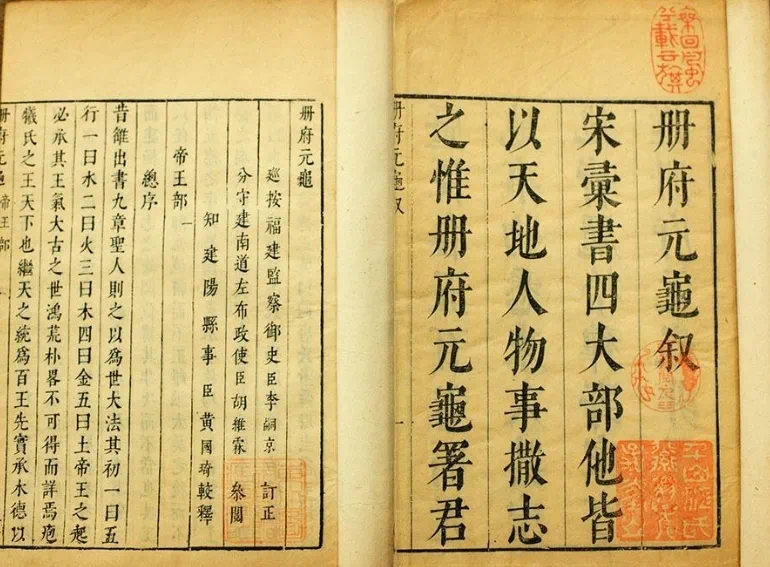 册府元龜叙
宋彙書四大部他皆
以天地人物事撒志
之惟册府元龜署君
册府元龜叙
一
册府元龜
廵按福建監察御史臣李嗣京 訂正
分守建南道左布政使臣胡維霖 叅閱
知建陽縣事臣黄國琦較釋
帝王部 一
總序
昔雒出書九章聖人則之以爲世大法其初一曰五
行一曰水二曰火三曰木四曰金五曰土帝王之起
必承其王氣大古之世鴻荒朴畧不可得而詳焉庖
犧氏之王天下也繼天之統爲百王先實承木德以
册府元龜 帝王部